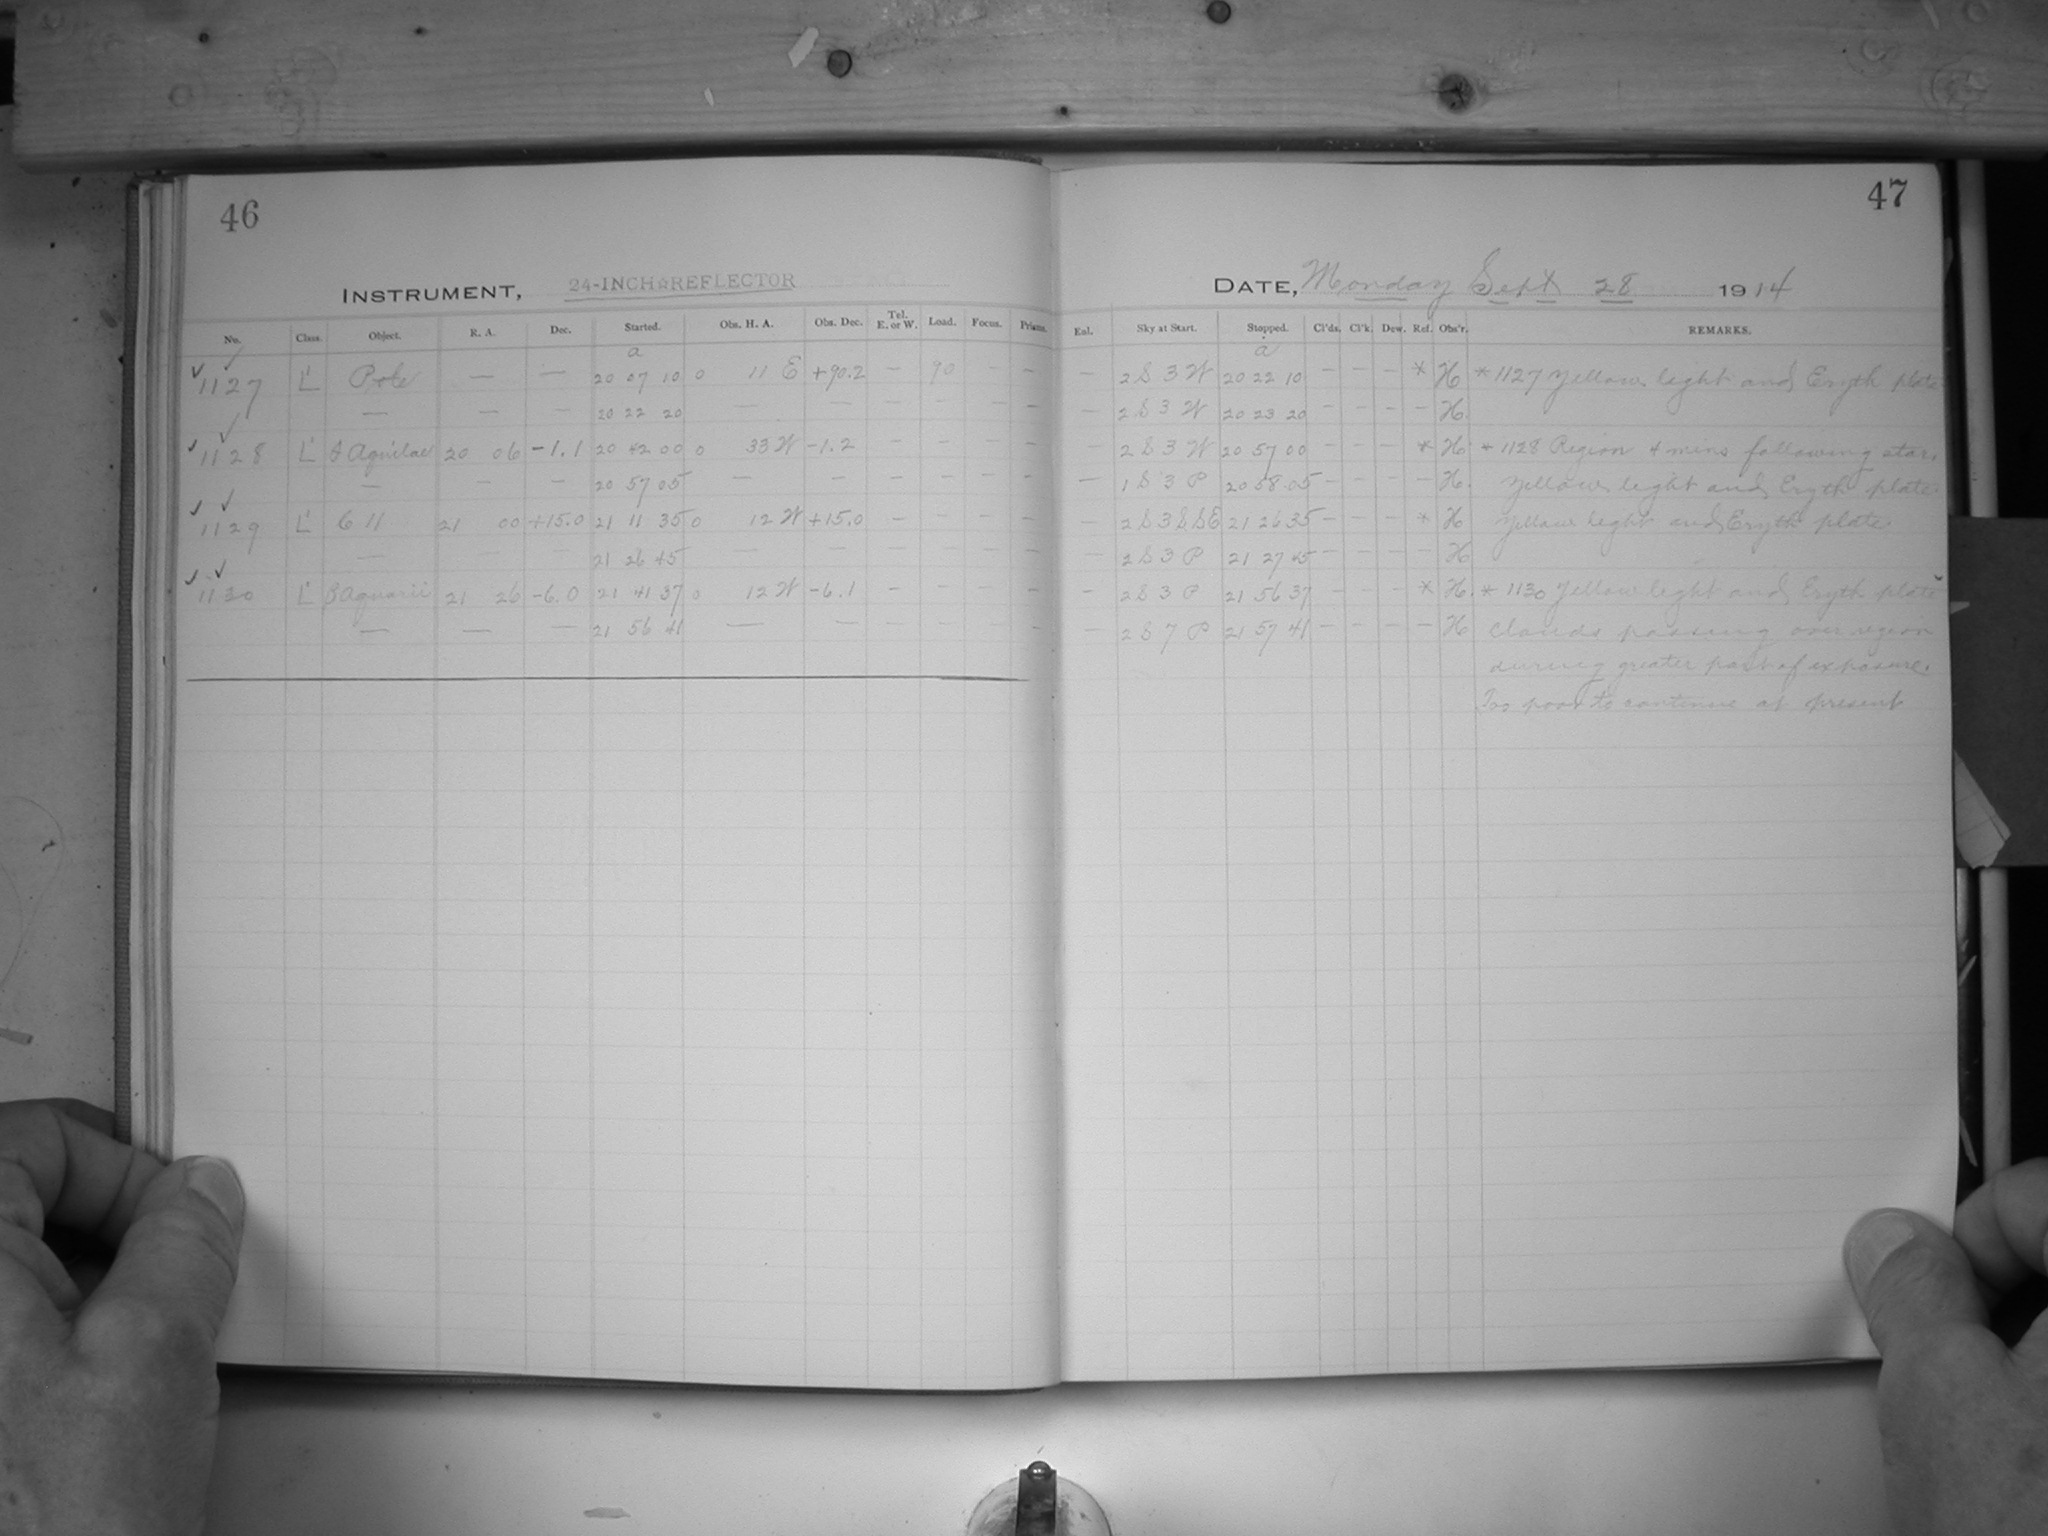 46
INSTRUMENT, 24-INCH☆REFLECTOR
No. Class. Object. R. A. Dec. Started. Obs. H. A. Obs. Dec. Tel. E. or W. Load. Focus. Prisms.
a
1127 L' Pole — — 20 07 10 0 11 E +90.2 — 90 — —
— — — 20 22 20 — — — — — —
1128 L' θ Aquilae 20 06 -1.1 20 42 00 0 33 W -1.2 — — — —
— — — 20 57 05 — — — — — —
1129 L' C 11 21 00 +15.0 21 11 35 0 12 W +15.0 — — — —
— — — 21 26 45 — — — — — —
1130 L' β Aquarii 21 26 -6.0 21 41 37 0 12 W -6.1 — — — —
— — — 21 56 41 — — — — — —
47
DATE, Monday Sept 28 1914
Eal. Sky at Start. Stopped. Cl'ds. Cl'k. Dew. Ref. Obs'r. REMARKS.
a
— 2 S 3 W 20 22 10 — — — * H * 1127 Yellow light and Eryth plate
— 2 S 3 W 20 23 20 — — — — H.
— 2 S 3 W 20 57 00 — — — * H * 1128 Region 4 mins following star.
— 1 S 3 P 20 58 05 — — — — H. Yellow light and Eryth plate
— 2 S 3 S S E 21 26 35 — — — * H Yellow light and Eryth plate
— 2 S 3 P 21 27 45 — — — — H
— 2 S 3 P 21 56 37 — — — * H. * 1130 Yellow light and Eryth plate
— 2 S 7 P 21 57 41 — — — — H Clouds passing over region
during greater part of exposure.
Too poor to continue at present